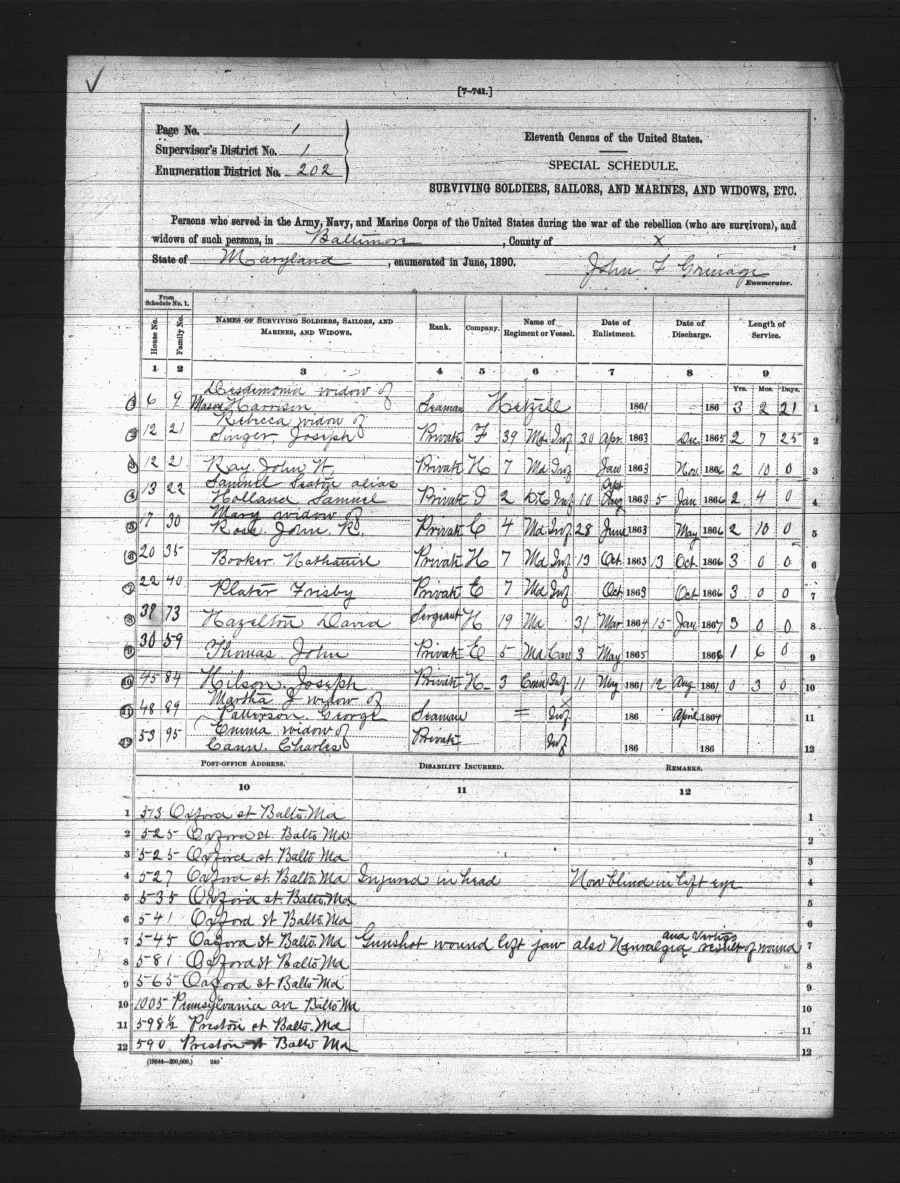 [7-741.]
Page No. 1
Supervisor's District No. 1
Enumeration District No. 202
Eleventh Census of the United States.
SPECIAL SCHEDULE.
SURVIVING SOLDIERS, SAILORS, AND MARINES, AND WIDOWS, ETC.
Persons who served in the Army, Navy, and Marine Corps of the United States during the war of the rebellion (who are survivors), and
widows of such persons, in Baltimore, County of x,
State of Maryland, enumerated in June, 1890. John F Grinage
Enumerator.
From Schedule No. 1.
House No. Family No. NAMES OF SURVIVING SOLDIERS, SAILORS, AND MARINES, AND WIDOWS. Rank. Company. Name of Regiment or Vessel. Date of Enlistment. Date of Discharge. Length of Service.
1 2 3 4 5 6 7 8 9
Yrs. Mos. Days.
Desdemonia widow of
1 6 9 Harrison Seaman 1861 186 3 2 21 1
Rebecca widow of
2 12 21 Singer, Joseph Private F 39 Md. Inf 30 Apr. 1863 Dec. 1865 2 7 25 2
3 12 21 Ray, John H, Private H 7 Md Inf Jan 1863 Nov. 1866 2 10 0 3
Samuel Seaton alias
4 13 22 Holland Samuel Private I 2 Inf 10 Sept Aug 1863 5 Jan 1866 2 4 0 4
Mary widow of
5 17 30 Rose, John, R. Private C 4 Md Inf 28 June 1863 May 1866 2 10 0 5
6 20 35 Booker, Nathaniel Private H 7 Md Inf 13 Oct. 1863 13 Oct. 1866 3 0 0 6
7 22 40 Plater Frisby Private E 7 Md Inf Oct 1863 Oct 1866 3 0 0 7
8 38 73 Hazelton David Sergeant H 19 Md 31 Mar 1864 15 Jan 1867 3 0 0 8
9 30 59 Thomas John Private E 5 Md Cav 3 May 1865 1866 1 6 0 9
10 45 84 Hilson, Joseph Private H 3 Conn Inf 11 May 1861 12 Aug 1861 0 3 0 10
Martha J widow of
11 48 89 Patterson, George Seaman = x Inf 186 April 1864 11
Emma widow of
12 53 95 Cann, Charles Private Inf 186 186 12
POST-OFFICE ADDRESS. DISABILITY INCURRED. REMARKS.
10 11 12
1 513 Oxford st Balto. Md 1
2 525 Oxford st. Balto Md 2
3 525 Oxford st. Balto Md 3
4 527 Oxford st. Balto. Md Injured in head Now blind in left eye 4
5 535 Oxford st. Balto. Md 5
6 541 Oxford st Balto Md 6
7 545 Oxford St Balto. Md Gunshot wound left jaw also Neuralgia and Vertigo result of wound 7
8 581 Oxford St Balto Md 8
9 565 Oxford st Balto Md 9
10 1005 Pennsylvania av Balto Md 10
11 598½ Preston st Balto. Md 11
12 590 Preston st Balto Md 12
(19844—200,000.) 240